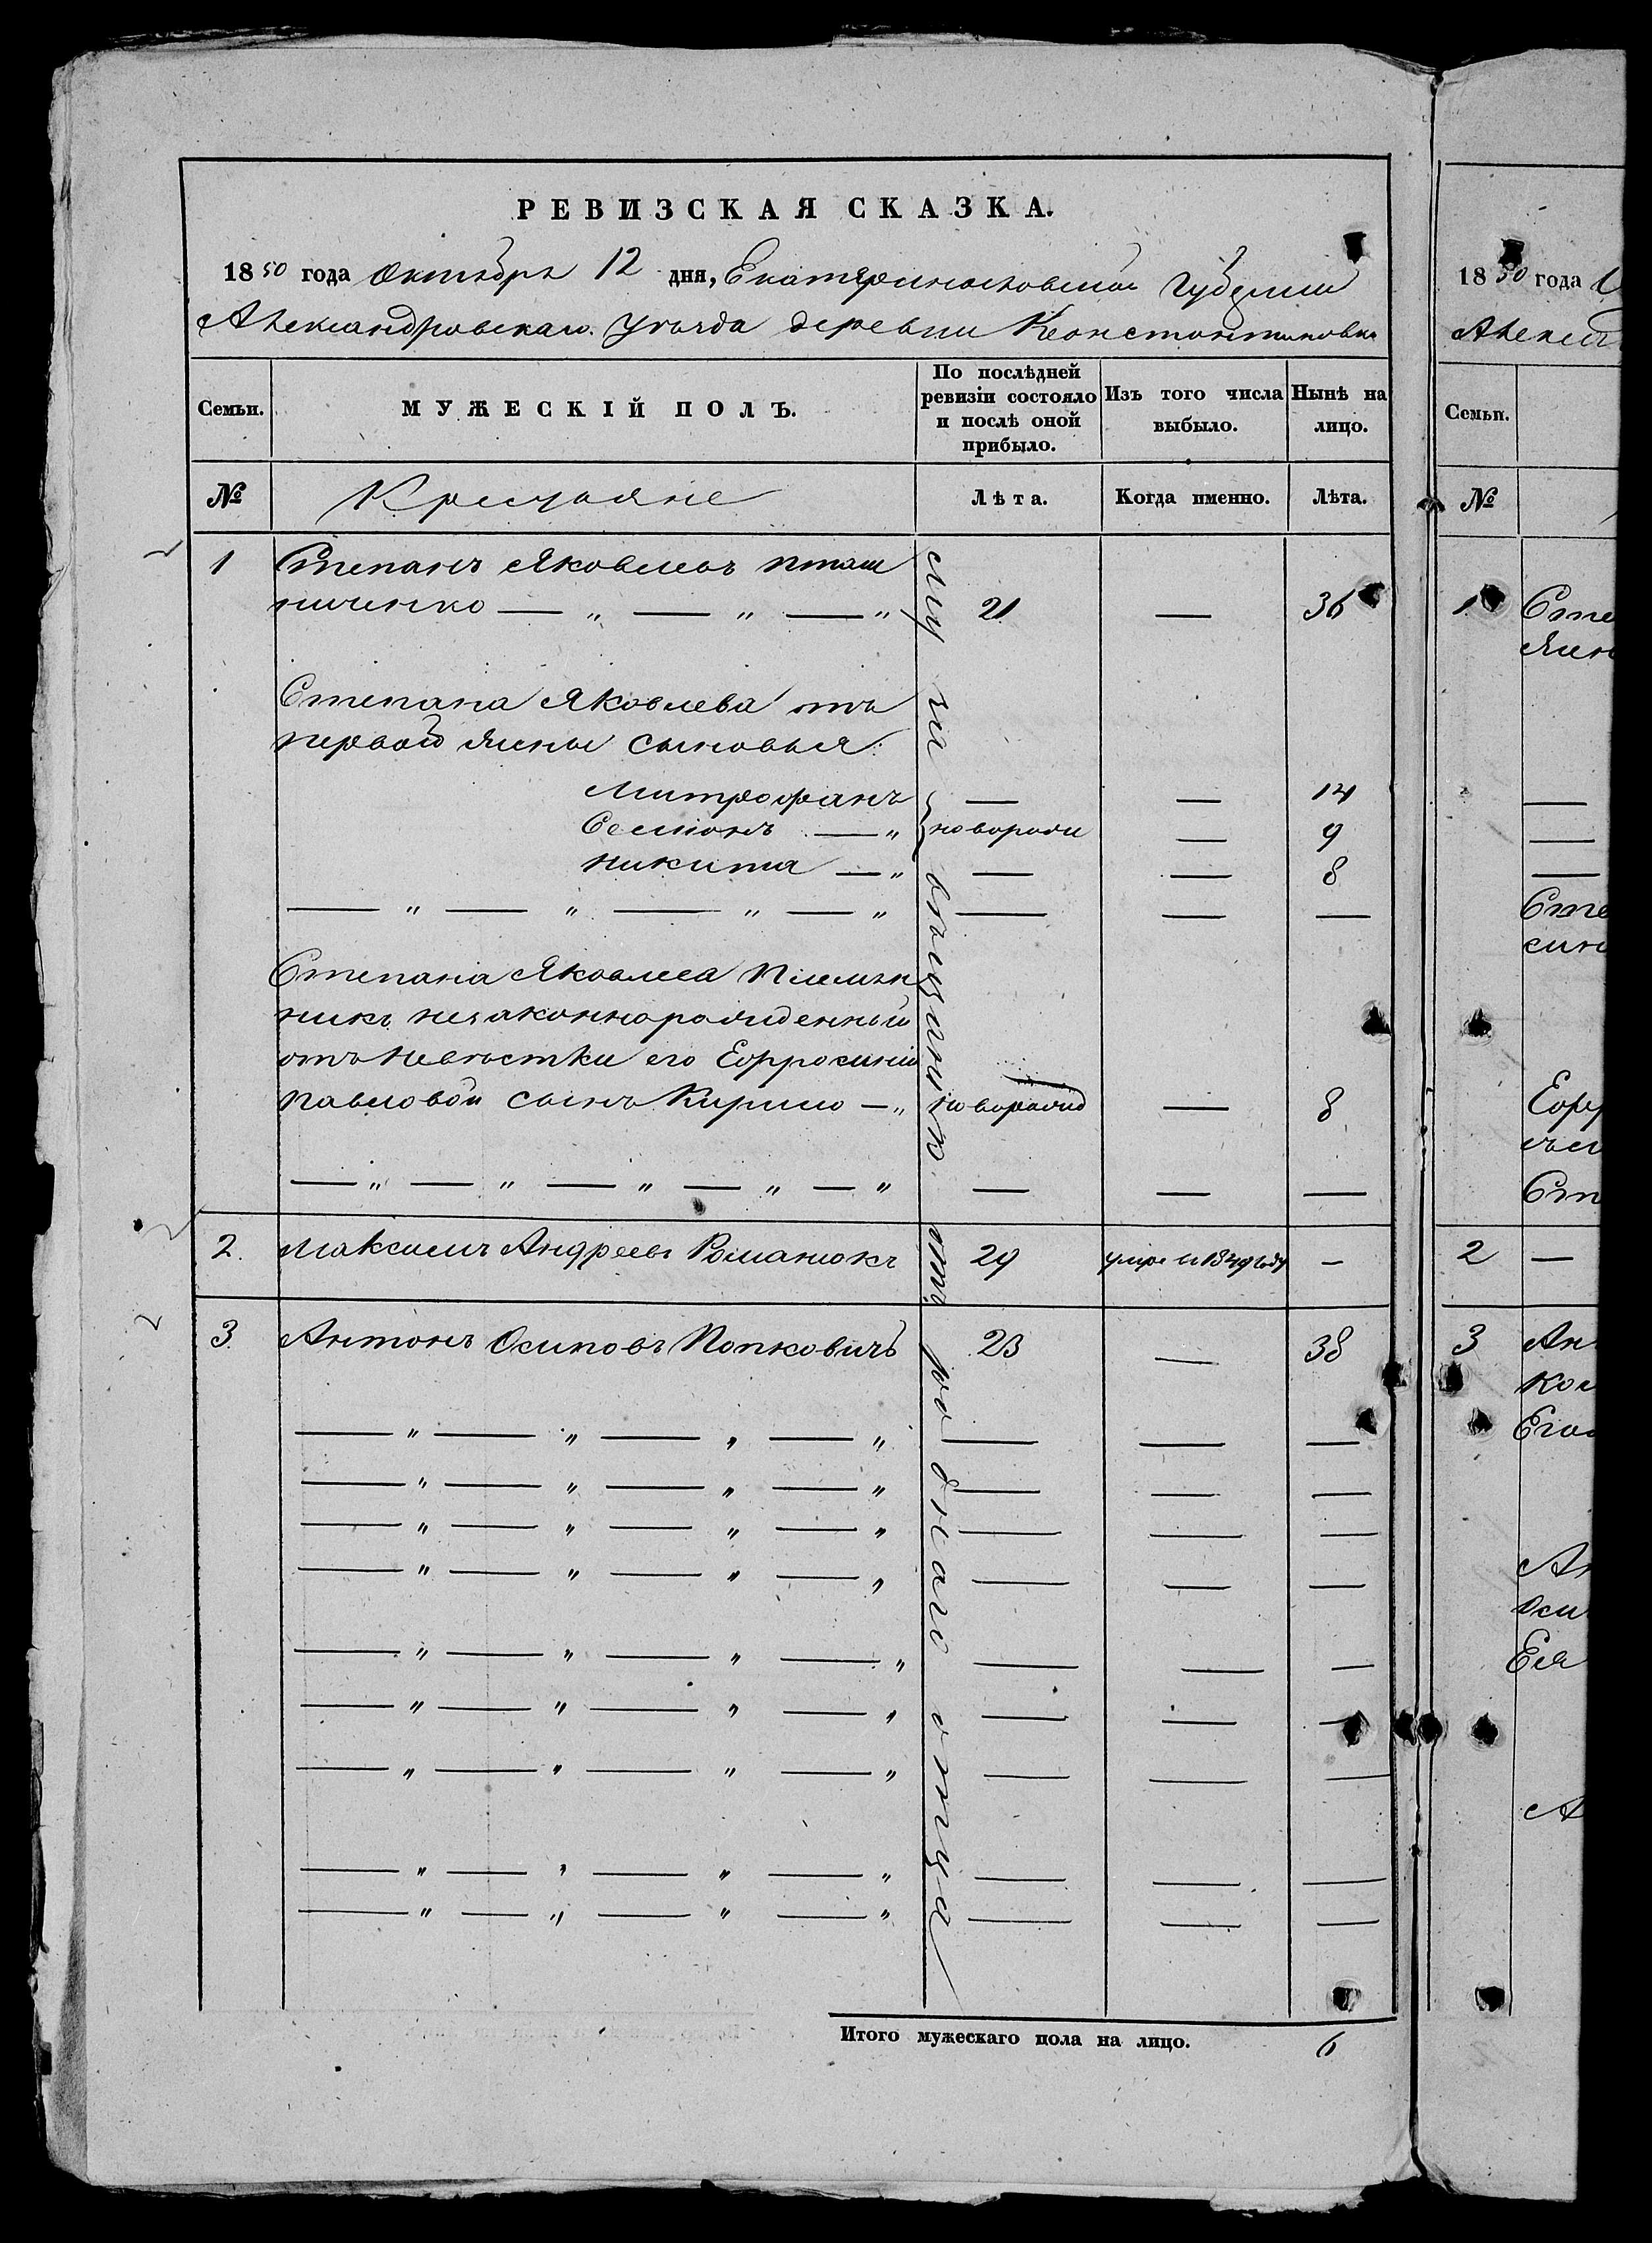 РЕВИЗСКАЯ СКАЗКА.
1850 года Октября 12 дня, Екатеринославской Губернии
Александровскаго Уѣзда деревни Константиновки
Семьи. МУЖЕСКІЙ ПОЛЪ. По послѣдней ревизіи состояло и послѣ оной прибыло. Изъ того числа выбыло. Нынѣ на лицо.
№ Крестьяне Лѣта. Когда именно. Лѣта.
1 Степанъ Яковлевъ Пташ
ниченко — " — " — " 21 — 36
Степана Яковлева отъ
первой жены сыновья:
Митрофанъ — — 14
Семионъ — " новорожд — 9
Никита — " — — 8
— " — " — " — " — — —
Степана Яковлева племян
никъ незаконнорожденный
отъ невѣстки его Ефросиніи
Павловой сынъ Кирило — " новорожд — 8
— " — " — " — " — " — — —
2. Максимъ Андреевъ Романюкъ 29 умре въ 1849 году —
3. Антонъ Осиповъ Попковичъ 23 — 38
— " — " — " — " — — —
— " — " — " — " — — —
— " — " — " — " — — —
— " — " — " — " — — —
— " — " — " — " — — —
— " — " — " — " — — —
— " — " — " — " — — —
— " — " — " — " — — —
— " — " — " — " — — —
отъ роднаго отца
Итого мужескаго пола на лицо. 6
1850 года
Алекса
Семьи.
№
1 Сте
жен
—
—
—
Сте
Ефр
Ст
2 —
3 Ан
Оси
Ея
А